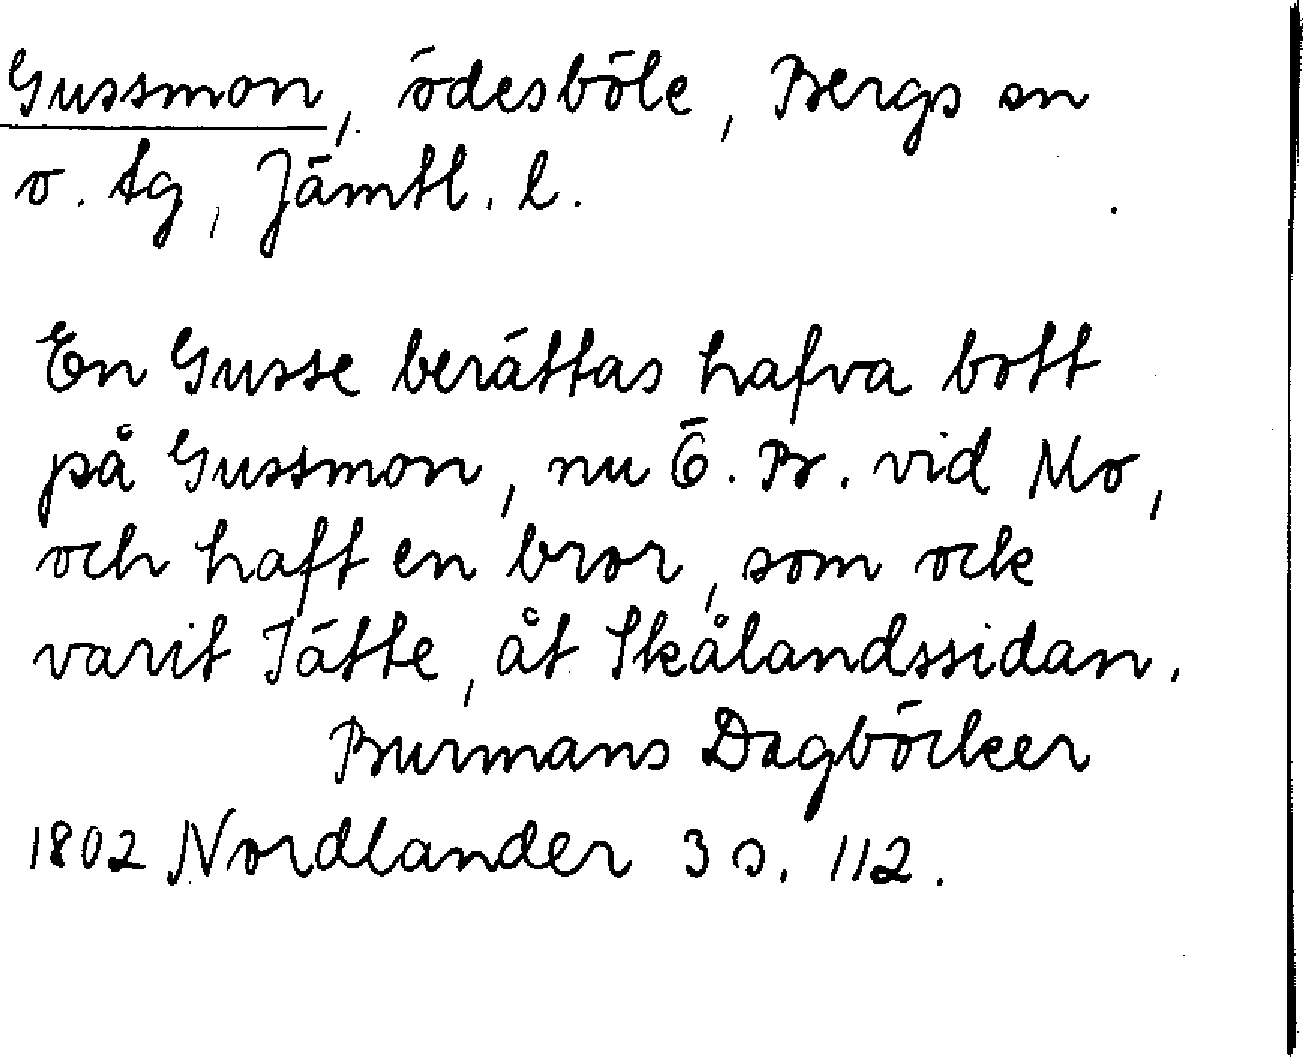 Gussmon, ödesböle, Bergs sn
o. tg, Jämtl. l.
En Gusse berättas hafva bott
på Gussmon, nu Ö. Br. vid Mo,
och haft en bror, som ock
varit Jätte, åt Skålandssidan.
Burmans Dagböcker
1802 Nordlander 3 s. 112.